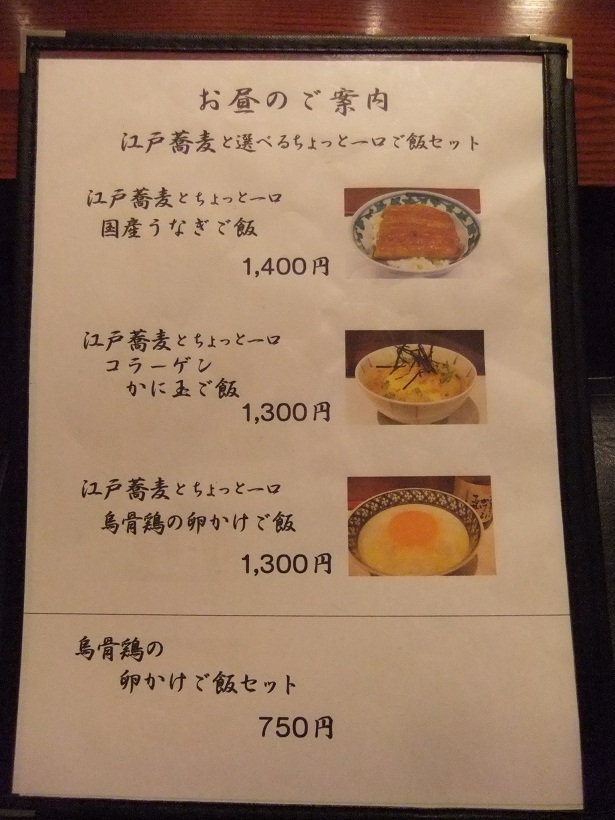 お昼のご案内
江戸蕎麦と選べるちょっと一口ご飯セット
江戸蕎麦とちょっと一口
国産うなぎご飯
1,400円
江戸蕎麦とちょっと一口
コラーゲン
かに玉ご飯
1,300円
江戸蕎麦とちょっと一口
烏骨鶏の卵かけご飯
1,300円
烏骨鶏の
卵かけご飯セット
750円